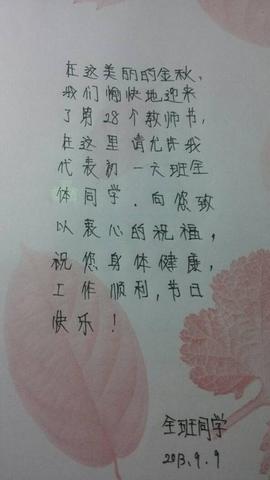 在这美丽的金秋,
我们愉快地迎来
了第28个教师节,
在这里请允许我
代表初一六班全
体同学.向您致
以衷心的祝福,
祝您身体健康,
工作顺利,节日
快乐!
全班同学
2013.9.9